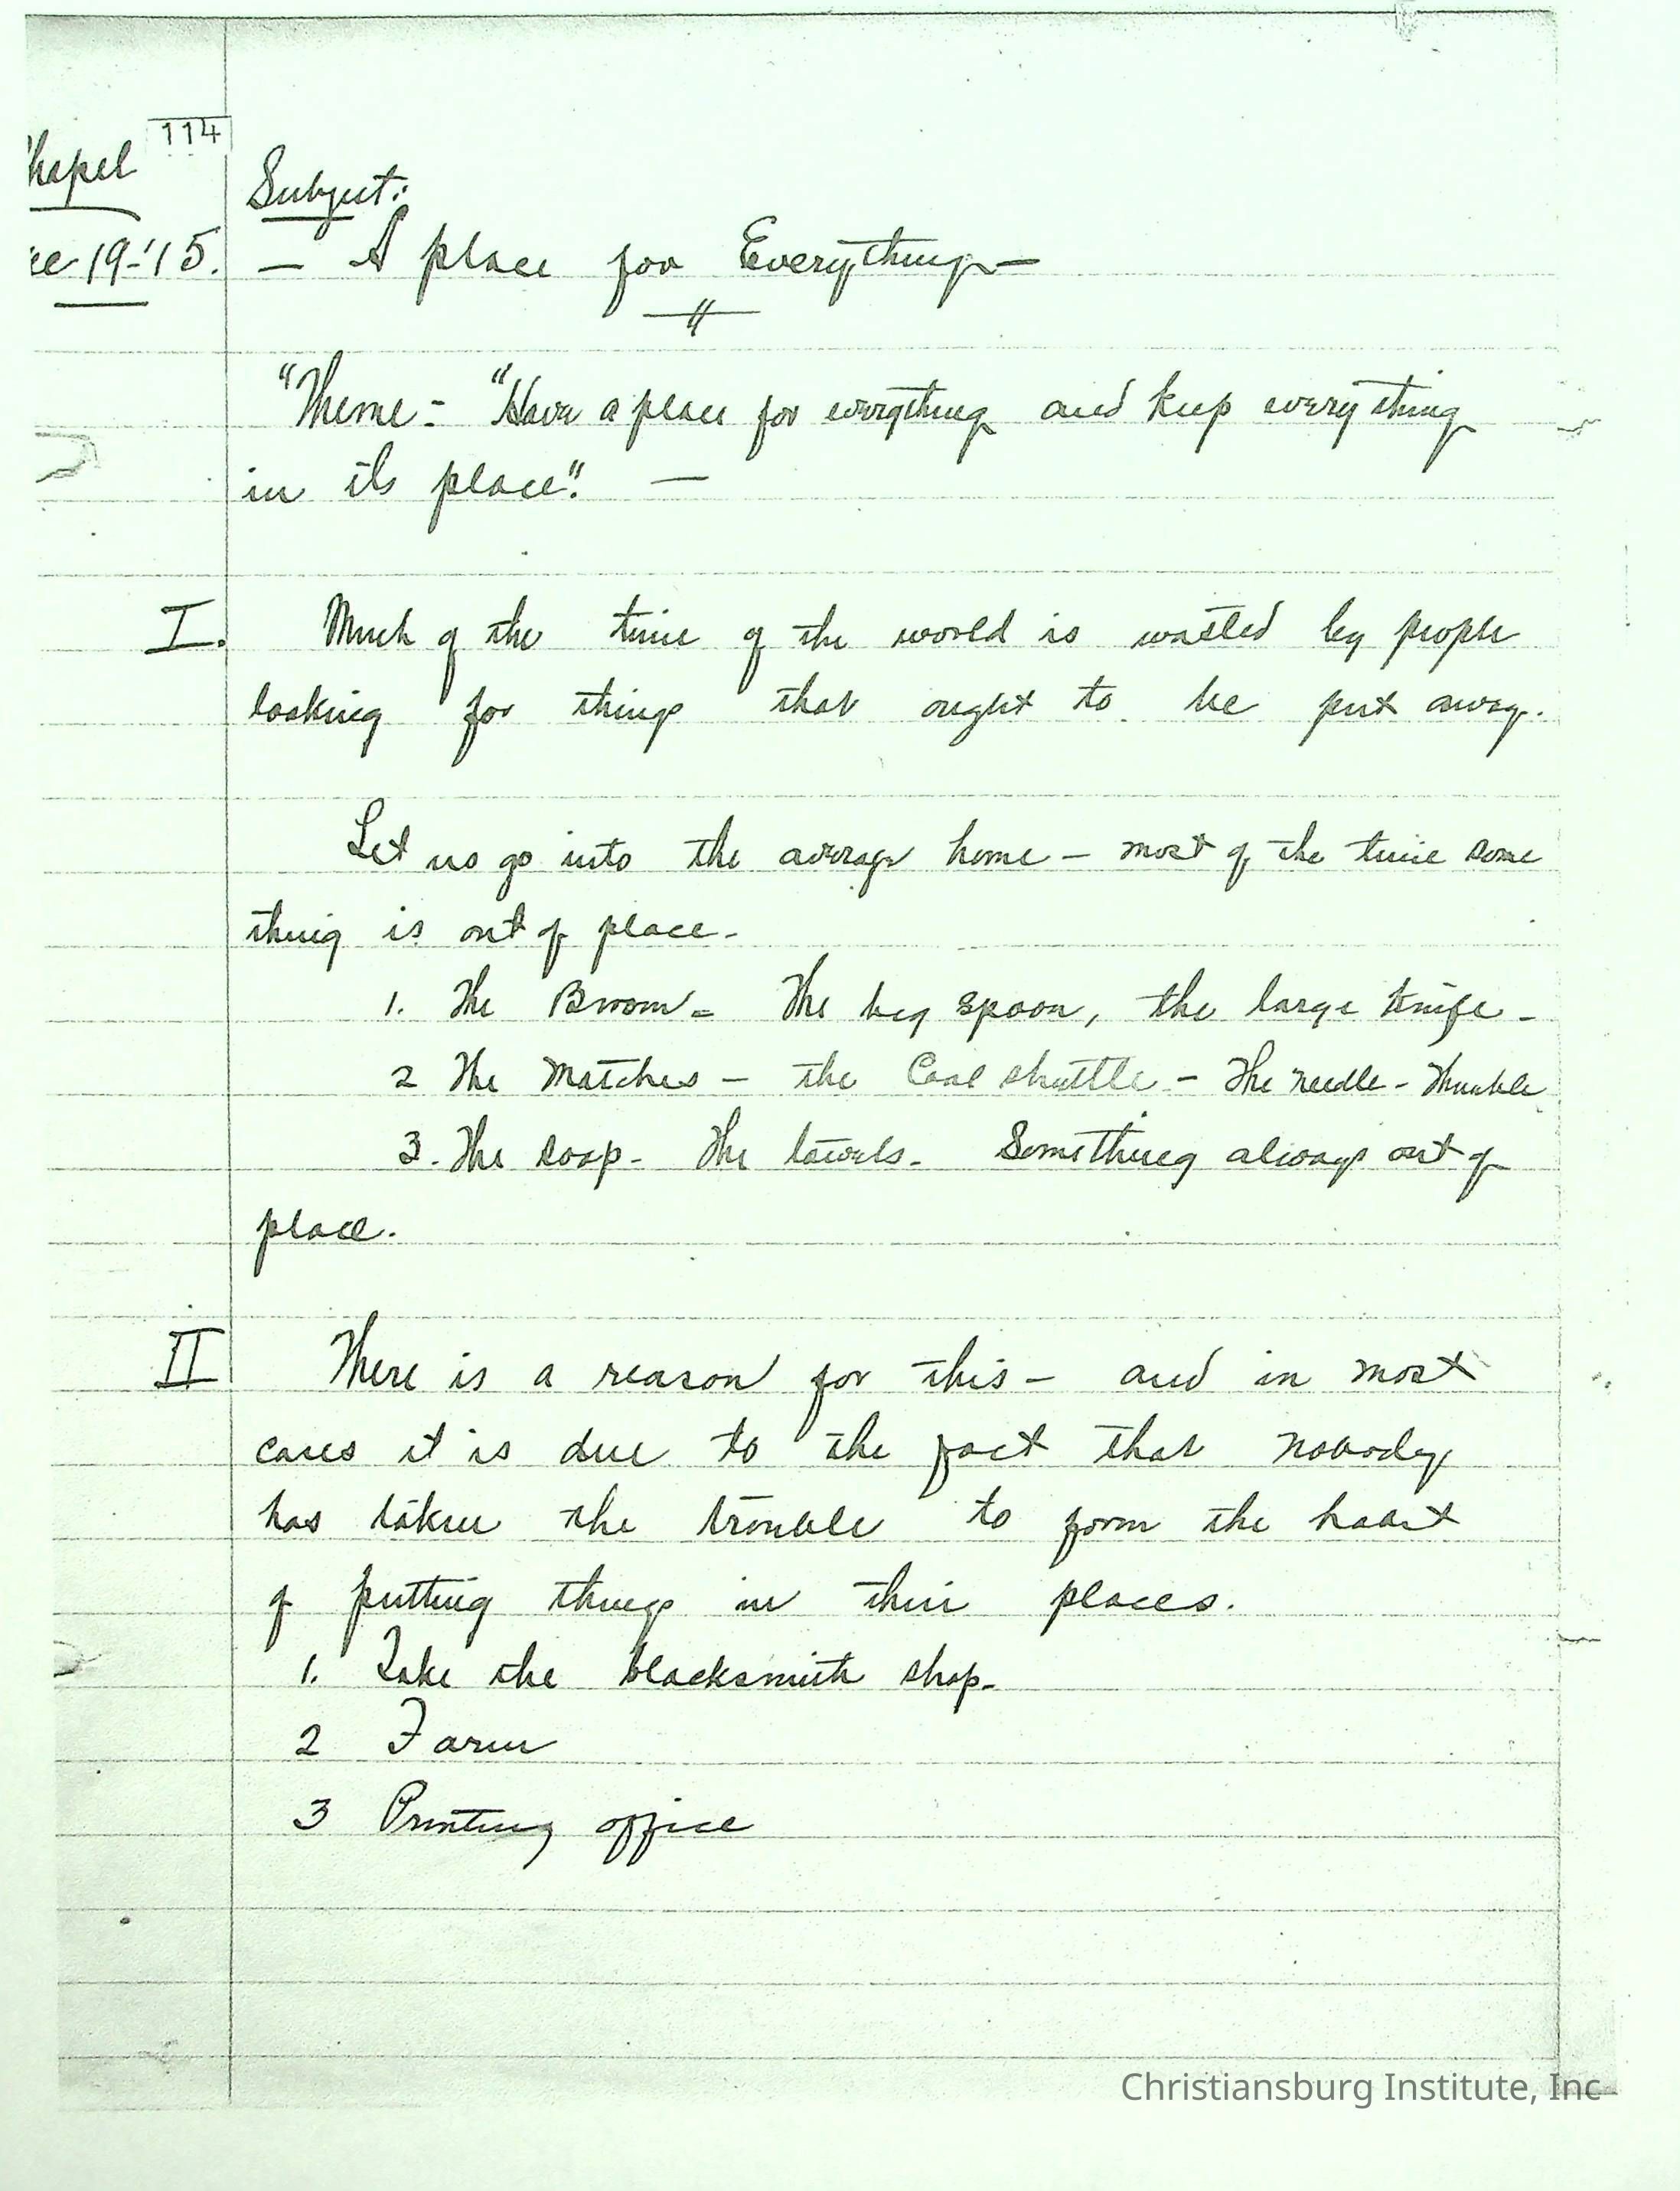 114
hapel
ec 19-'15.
Subject:
— A place for Everything —
"Theme - "Have a place for everything and keep everything
in its place". —
I. Much of the time of the world is wasted by people
looking for things that ought to be put away.
Let us go into the average home - most of the time some
thing is out of place -
1. The Broom - The big spoon, the large knife -
2 The matches - the Coal shuttle - The needle - Thimble
3. The soap - The towels - Something always out of
place.
II There is a reason for this - and in most
cases it is due to the fact that nobody
has taken the trouble to form the habit
of putting things in their places.
1. Take the blacksmith shop -
2 Farm
3 Printing office
Christiansburg Institute, Inc